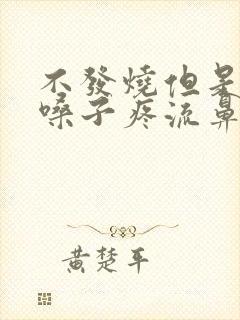 不發燒但是
嗓子疼流鼻
黃楚平